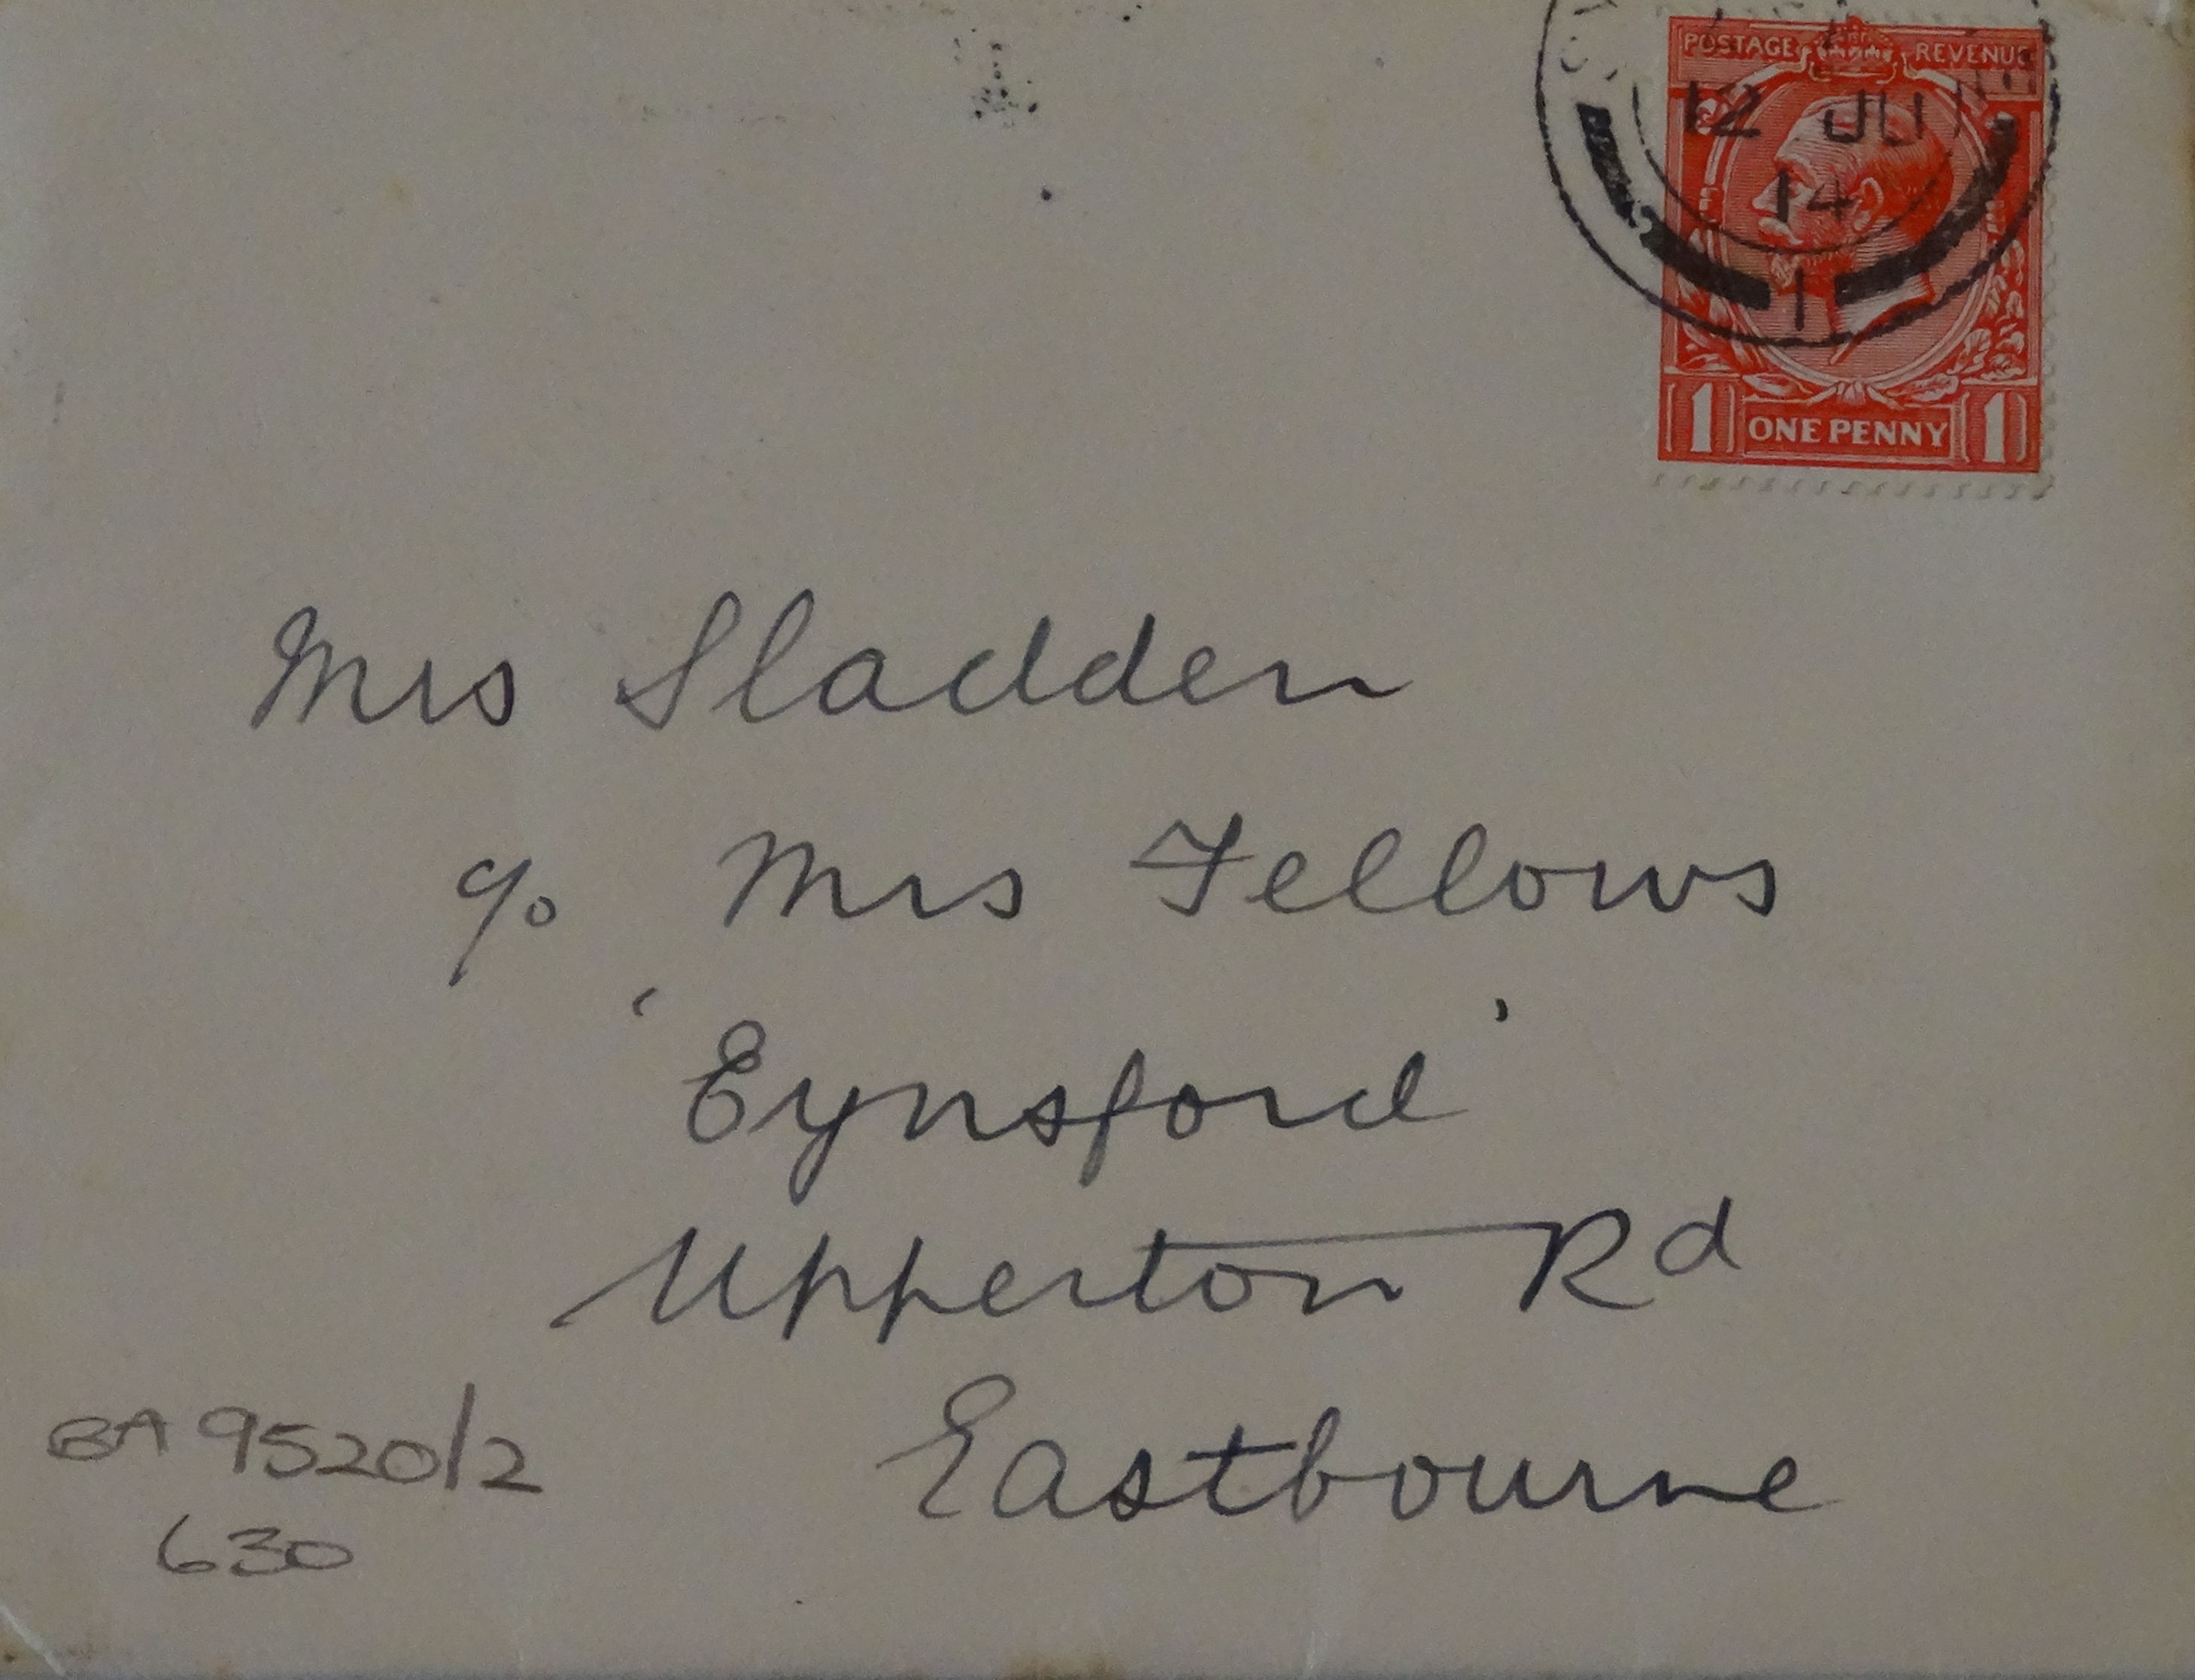 POSTAGE REVENUE
12 JU
14
1
1 ONE PENNY 1
Mrs Sladden
c/o Mrs Fellows
'Eynsford'
Upperton Rd
Eastbourne
BA 9520/2
630